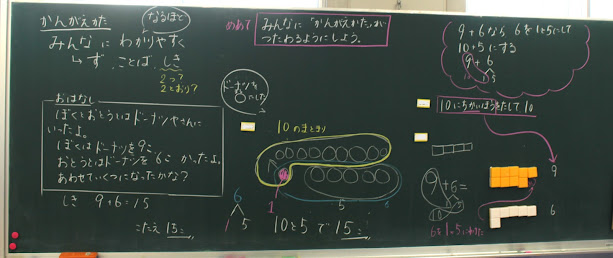 かんがえかた
なるほど
みんなに わかりやすく
→ず ことば しき
2つ?
2とおり?
めあて みんなに「かんがえかた」が
つたわるようにしよう。
おはなし
ぼくとおとうとはドーナツやさんに
いったよ。
ぼくはドーナツを9こ、
おとうとはドーナツを6こ かったよ。
あわせていくつになったかな?
しき 9+6=15
こたえ 15こ
ドーナツを
○にした
10のまとまり
1
5
6
1 5
10と5で15こ
9+6なら 6を1と5にして
10+5にする
9+6
1 5
10にちかいほうをたして10
9+6=
10
6を1と5にわけた
9
6